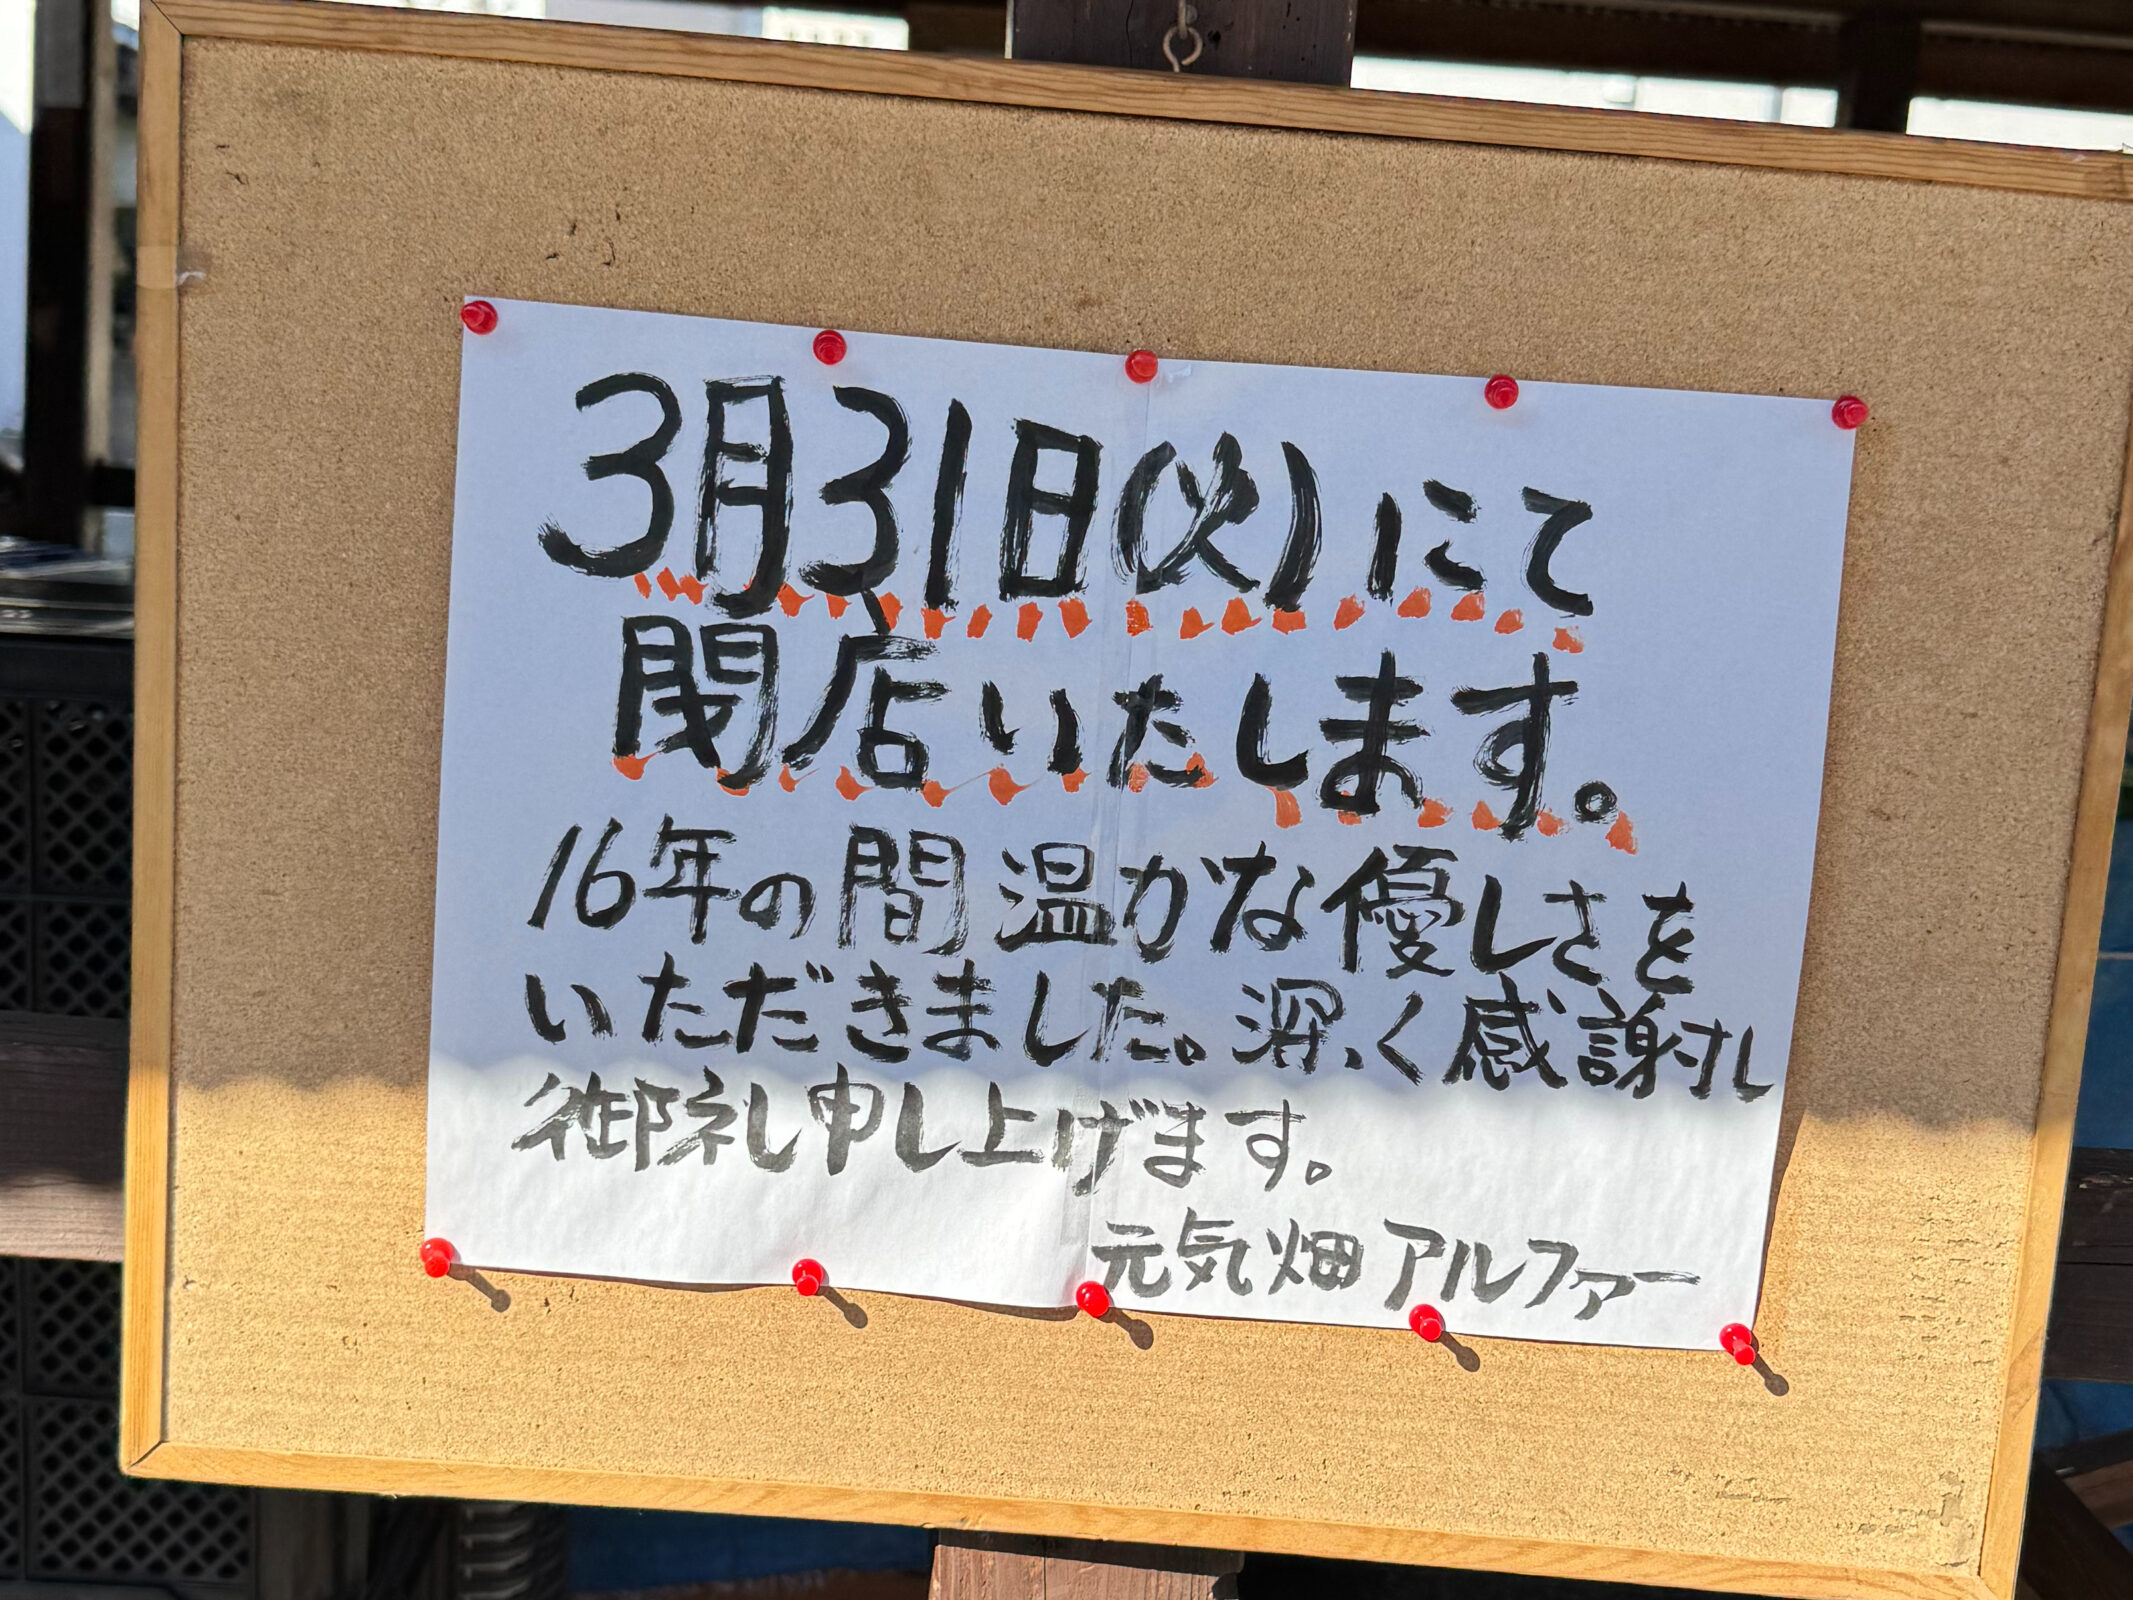 3月31日(火)にて
閉店いたします。
16年の間温かな優しさを
いただきました。深く感謝し
御礼申し上げます。
元気畑アルファー